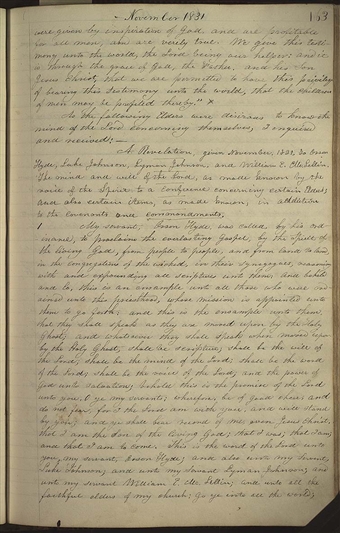 November 1831.
163
were given by inspiration of God, and are profitable
for all men, and are verily true. We give this testi-
mony unto the world, the Lord being our helper: and it
is through the grace of God, the Father, and his Son
Jesus Christ, that we are permitted to have this privilege
of bearing this testimony unto the world, that the children
of men may be profited thereby." x
As the following Elders were desirous to know the
mind of the Lord concerning themselves, I enquired
and received:—
A Revelation, given November, 1831, to Orson
Hyde, Luke Johnson, Lyman Johnson, and William E. McLellin.
The mind and will of the Lord, as made known by the
voice of the Spirit to a conference concerning certain Elders;
and also certain items, as made known, in addition
to the Covenants and commandments.
1 My servant, Orson Hyde, was called, by his ord-
inance, to proclaim the everlasting Gospel, by the Spirit of
the living God, from people to people, and from land to land,
in the congregations of the wicked, in their synagogues, reasoning
with and expounding all scriptures unto them; and behold
and lo, this is an ensample unto all those who were or-
dained unto this priesthood, whose mission is appointed unto
them to go forth; and this is the ensample unto them,
that they shall speak as they are moved upon by the Holy
Ghost; and whatsoever they shall speak when moved upon
by the Holy Ghost, shall be scripture; shall be the will of
the Lord; shall be the mind of the Lord; shall be the word
of the Lord; shall be the voice of the Lord, and the power of
God unto salvation; behold this is the promise of the Lord
unto you, O ye my servants; wherefore, be of good cheer, and
do not fear, for I the Lord am with you, and will stand
by you; and ye shall bear record of me, even Jesus Christ,
that I am the Son of the living God; that I was; that I am;
and that I am to come. This is the word of the Lord unto
you, my servant, Orson Hyde; and also unto my servant,
Luke Johnson, and unto my servant Lyman Johnson; and
unto my servant William E. McLellin; and unto all the
faithful elders of my church: Go ye into all the world;